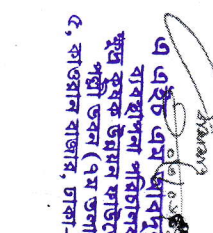 এ এইচ এম আবদু
ব্যবস্থাপনা পরিচালক
ক্ষুদ্র কৃষক উন্নয়ন ফাউন্ডে
পল্লী ভবন (৭ম তলা
৫, কাওরান বাজার, ঢাকা-